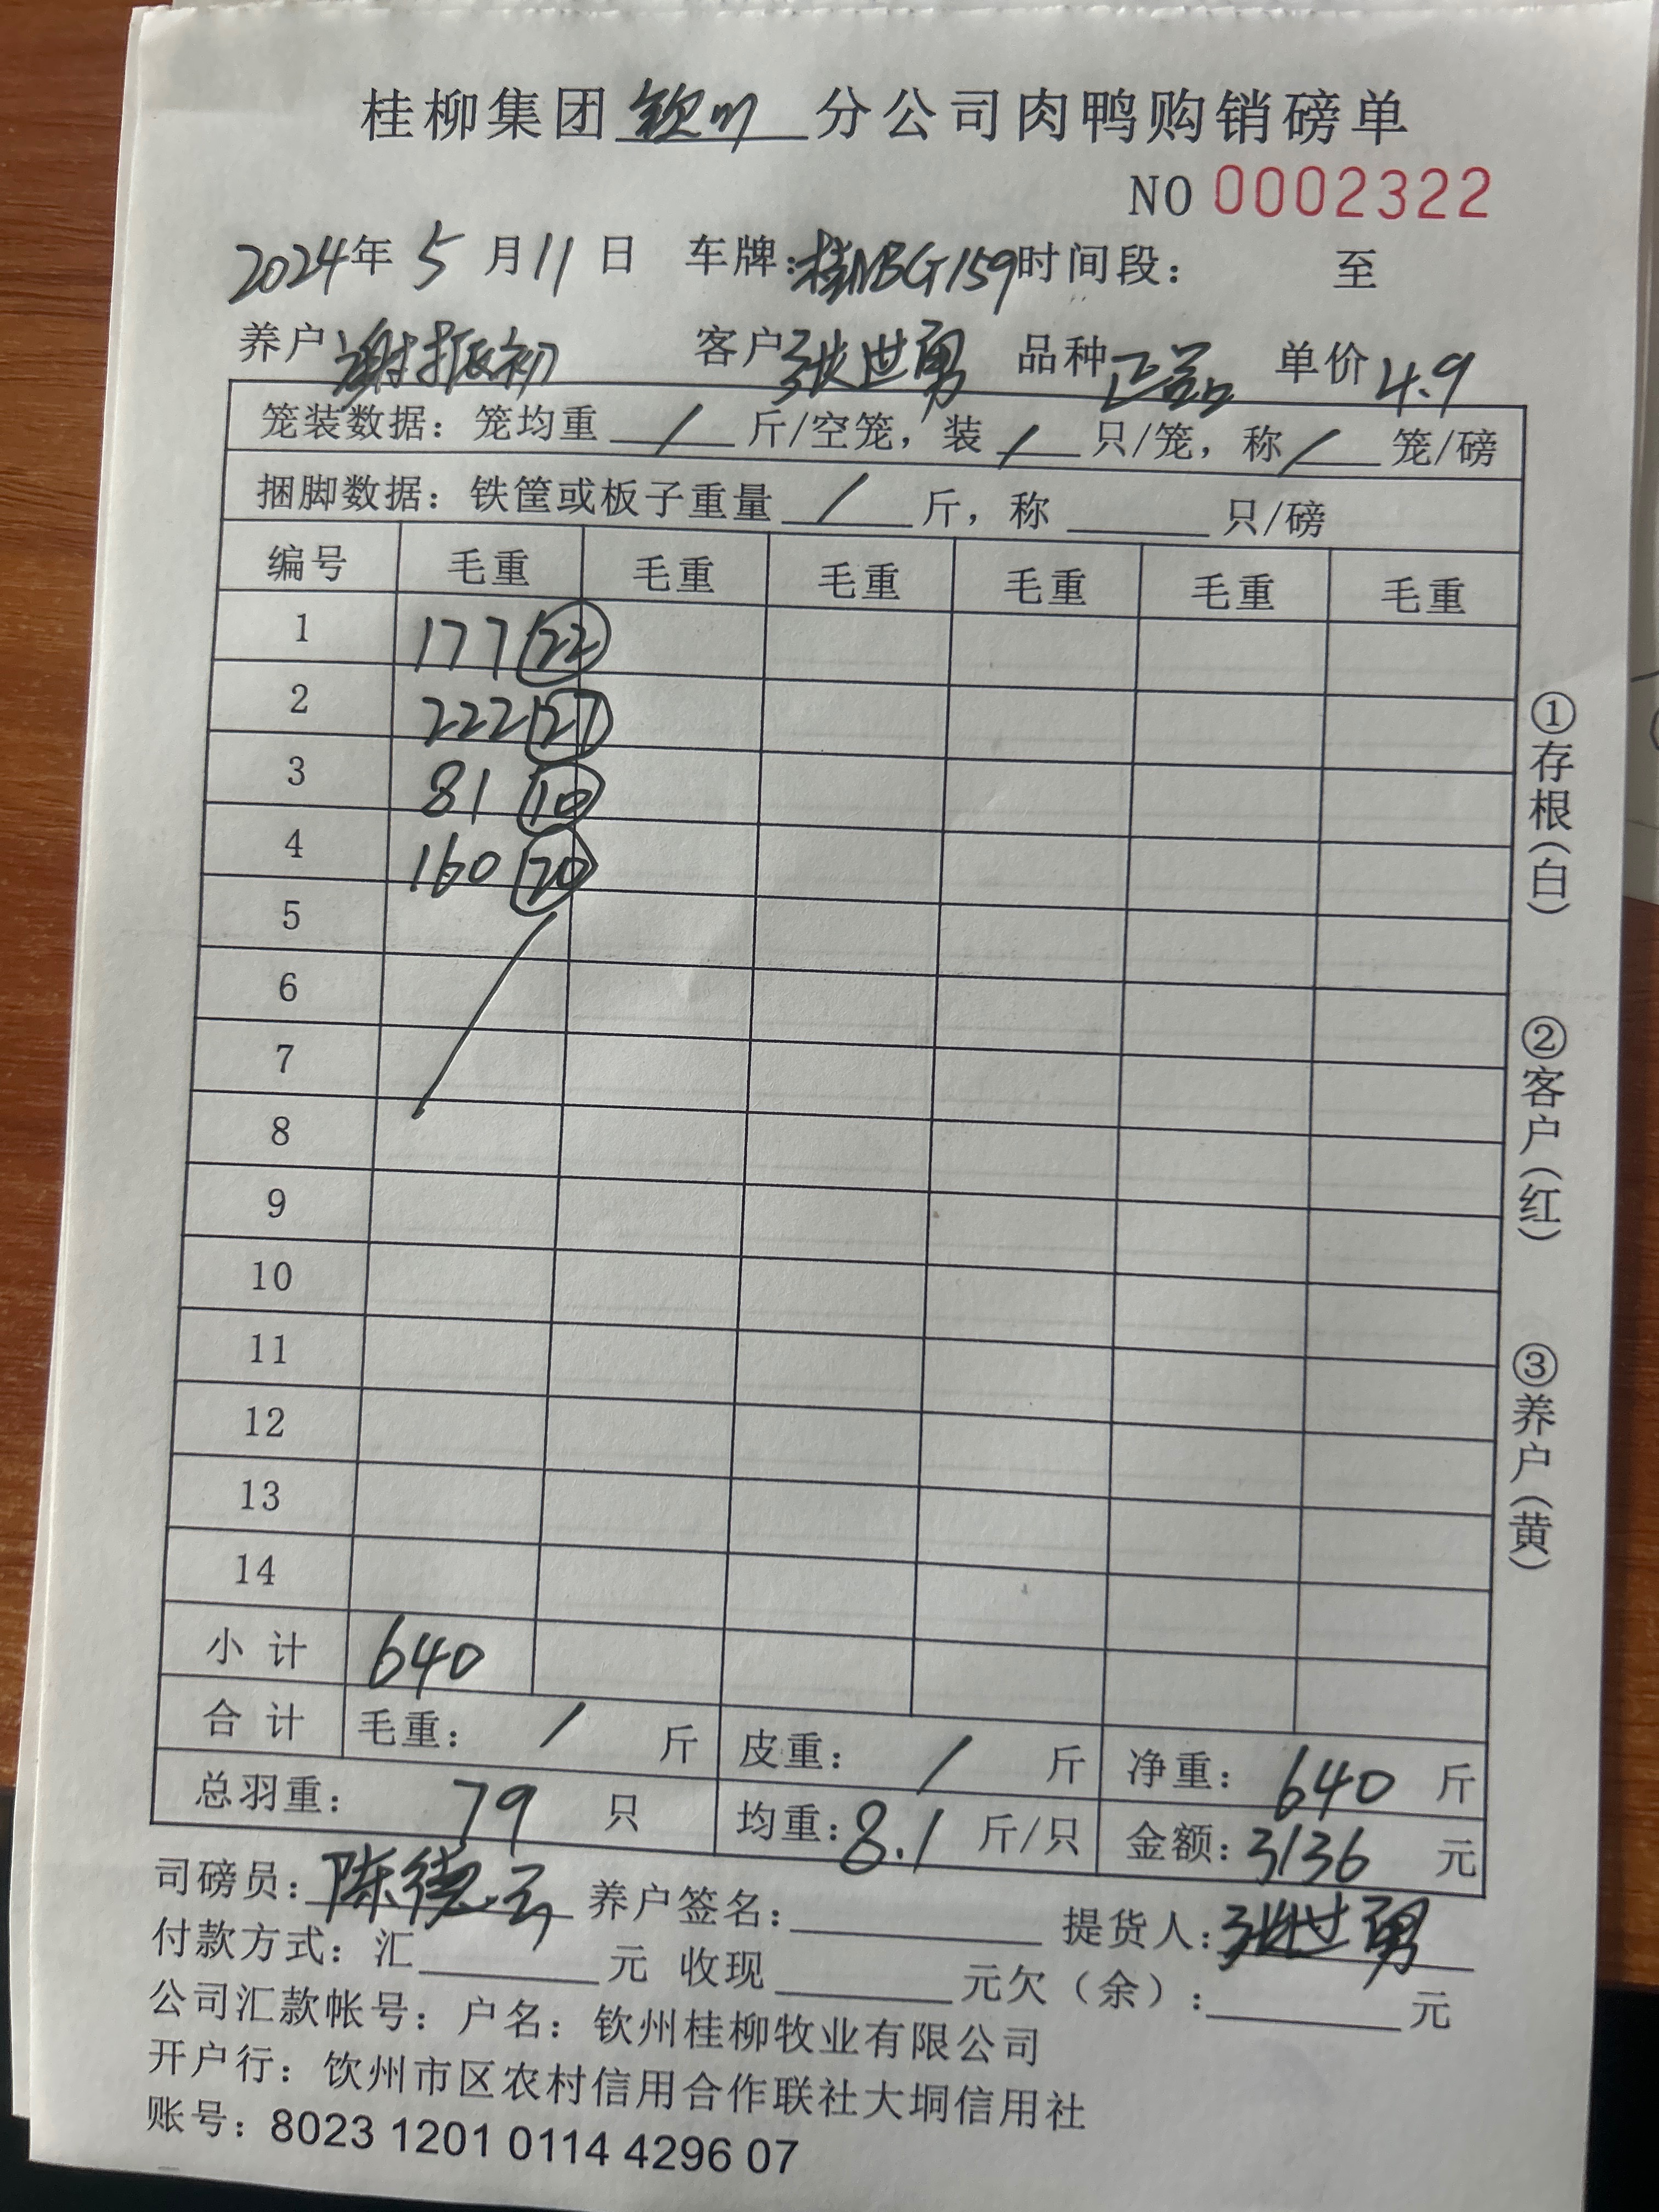 桂柳集团钦州分公司肉鸭购销磅单
NO 0002322
2024年 5 月 11 日 车牌:桂NBG159 时间段: 至
养户 谢振初 客户 张世勇 品种 正品 单价 4.9
笼装数据: 笼均重 / 斤/空笼, 装 / 只/笼, 称 / 笼/磅
捆脚数据: 铁筐或板子重量 / 斤, 称 只/磅
编号 毛重 毛重 毛重 毛重 毛重 毛重
1 177 22
2 222 27
3 81 10
4 160 20
5
6
7
8
9
10
11
12
13
14
小计 640
合计 毛重: / 斤 皮重: / 斤 净重: 640 斤
总羽重: 79 只 均重: 8.1 斤/只 金额: 3136 元
司磅员: 陈德云 养户签名: 提货人: 张世勇
付款方式: 汇 元 收现 元欠(余): 元
公司汇款帐号: 户名: 钦州桂柳牧业有限公司
开户行: 饮州市区农村信用合作联社大垌信用社
账号: 8023 1201 0114 4296 07
①存根(白)
②客户(红)
③养户(黄)